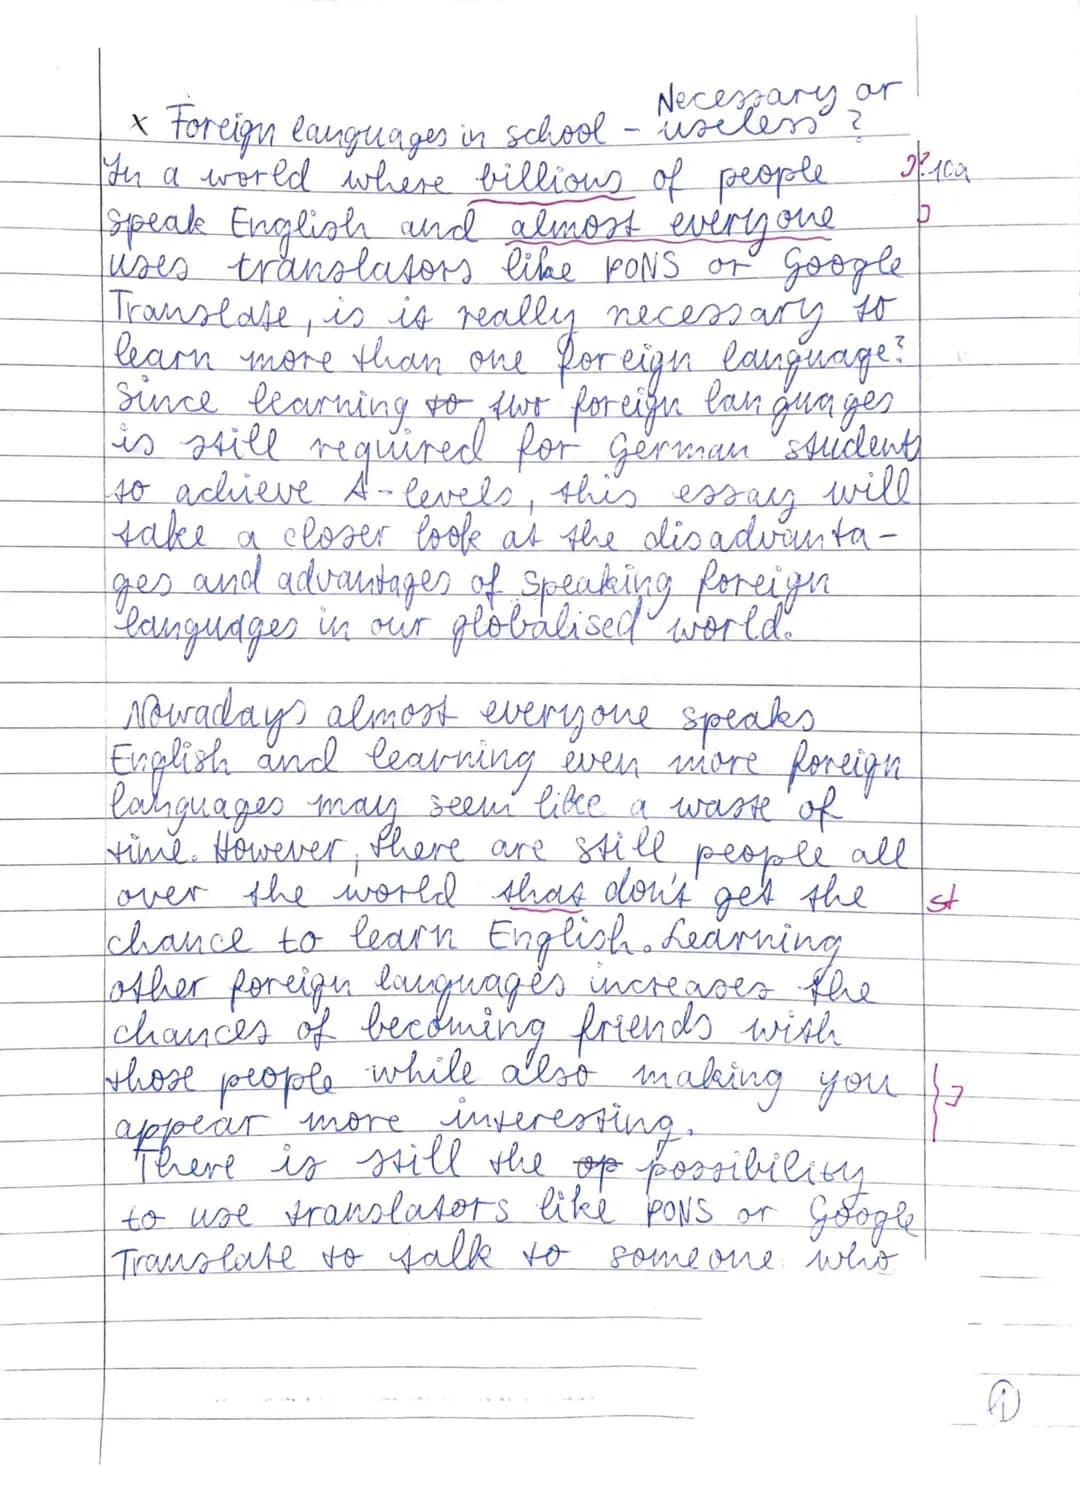 Necessary or
x Foreign languages in school - useless?
In a world where billions of people
speak English and almost everyone
uses translators like PONS or Google
Translate, is it really necessary to
learn more than one foreign language?
Since learning to two foreign languages
is still required for German students
to achieve A-levels, this essay will
take a closer look at the disadvanta-
ges and advantages of speaking foreign
languages in our globalised world.
Nowadays almost everyone speaks
English and learning even more foreign
languages may seem like a waste of
time. However, there are still people all
over the world that don't get the
st
chance to learn English. Learning
other foreign languages increases the
chances of becoming friends with
those people while also making you
appear more interesting.
There is still the op possibility
to use translators like PONS or Google
Translate to talk to someone who
1